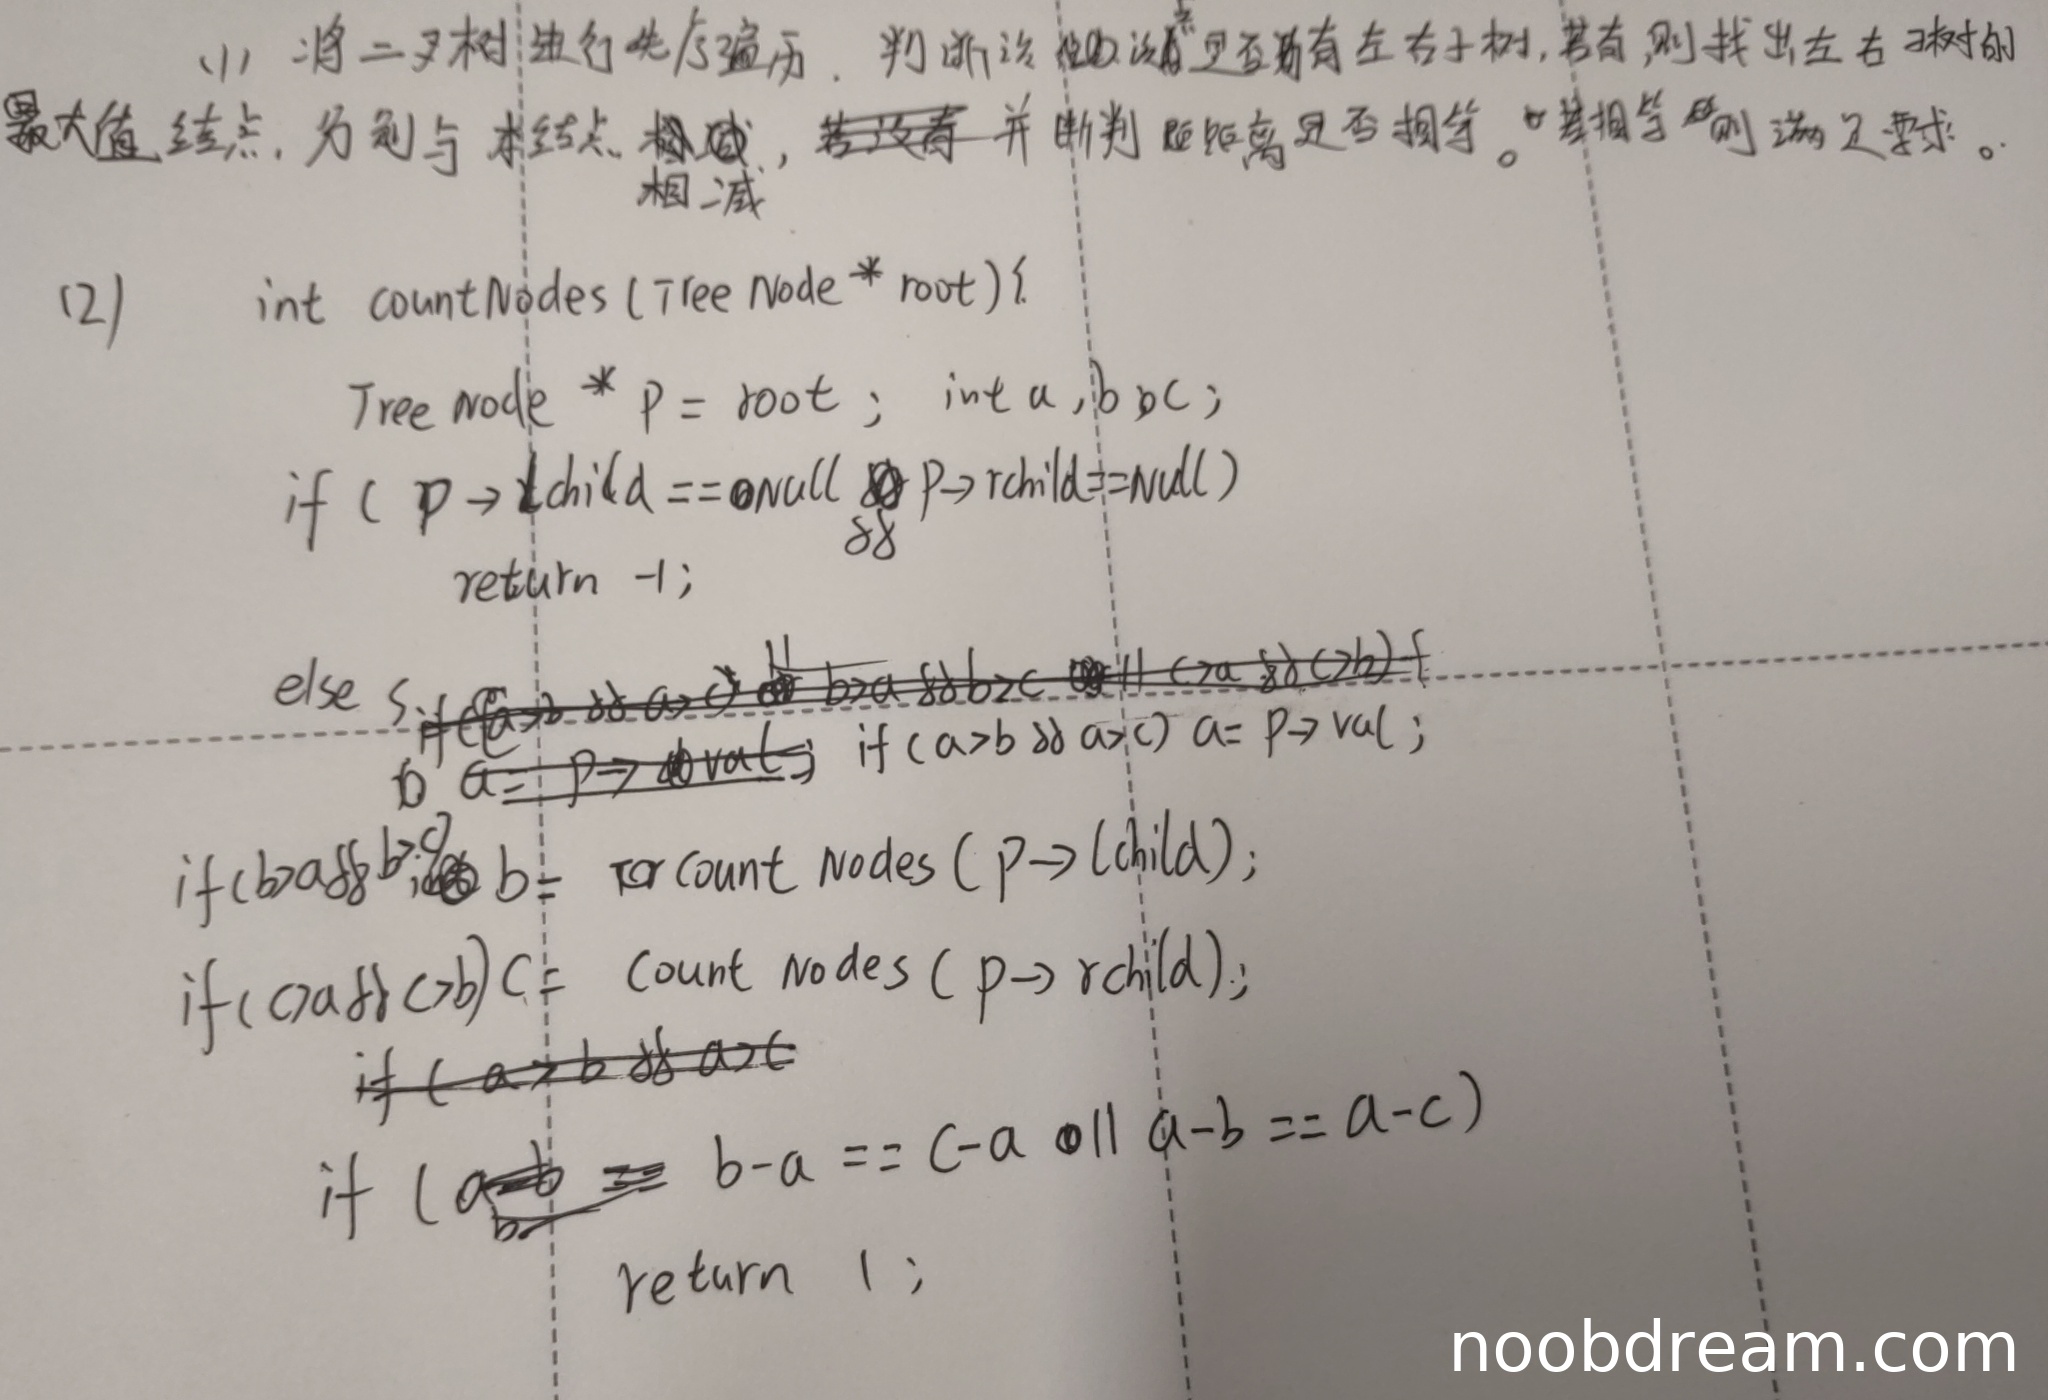 (1) 将二叉树进行先序遍历. 判断该 该结点是否有左右子树,若有,则找出左右子树的
最大值结点,分别与本结点 , 并断判 距离是否相等。若相等 则满足要求。
相减
(2) int countNodes(TreeNode * root){
TreeNode * p = root ; int a,b,c;
if ( p→lchild == Null p→rchild==Null)
&&
return -1;
else {
if(a>b && a>c) a= p→val;
if(b>a&&b>c) b= countNodes(p→lchild);
if(c>a&&c>b) c= countNodes(p→rchild);
if ( b-a == c-a || a-b == a-c)
return 1;
noobdream.com